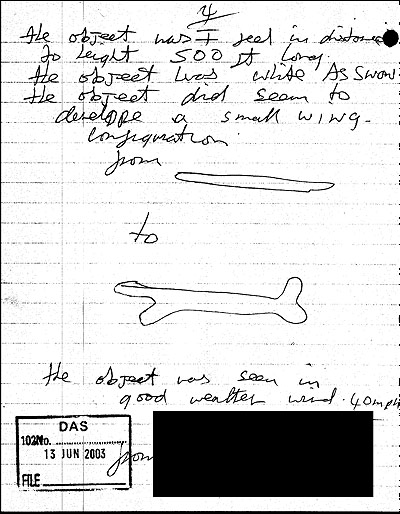 4
the object was I seed in distance
to height 500 ft long
the object was white As swow
the object did seem to
develope a small wing-
configuration
from
to
the object was seen in
good weather wind. 40mph
DAS
102No.
13 JUN 2003
FILE
from